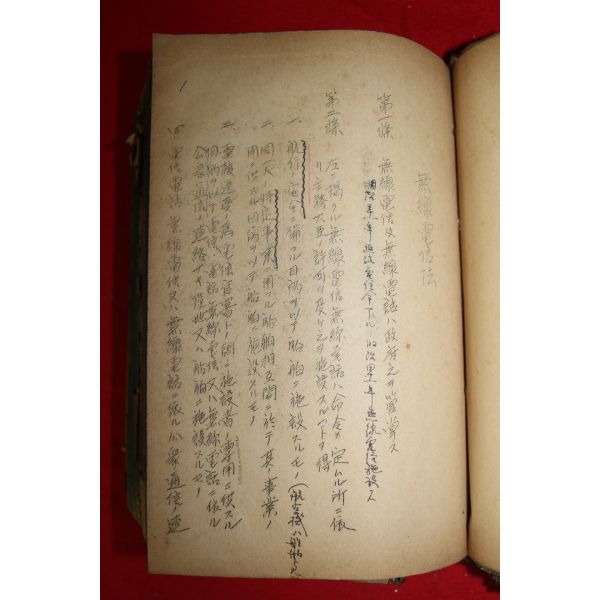 無線電信法
第一條 無線電信及無線電話ハ政府之ヲ管掌ス
第二條 左ニ掲クル無線電信無線電話ハ命令ノ定ムル所ニ依
リ主務大臣ノ許可ヲ受ケ之ヲ施設スルコトヲ得
一、航行ノ安全ニ備フル目的ヲ以テ船舶ニ施設スルモノ(航空機ハ船舶ト見
二、同一人ノ特定事業ニ用フル船舶相互間ニ於テ其ノ事業ノ
用ニ供スル目的ヲ以テ船舶ニ施設スルモノ
三、電報送受ノ為電信官署トノ間ニ施設者ノ専用ニ供スル
目的ヲ以テ電信、電話、無線電信又ハ無線電話ニ依ル
公衆通信ノ連絡ナキ陸地又ハ船舶ニ施設スルモノ
四、電信、電話、無線電信又ハ無線電話ニ依ル公衆通信ノ連